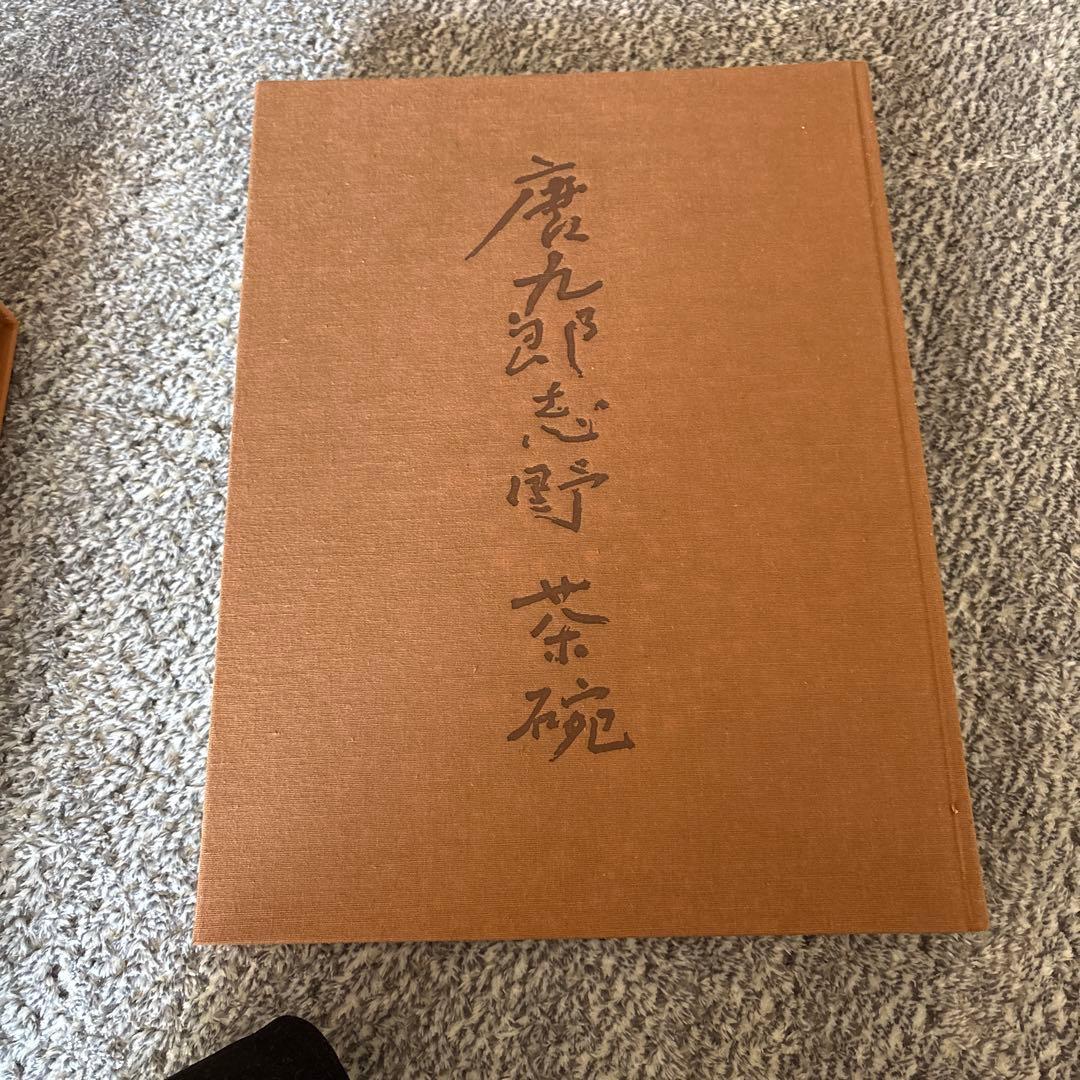 唐九郎志野 茶碗